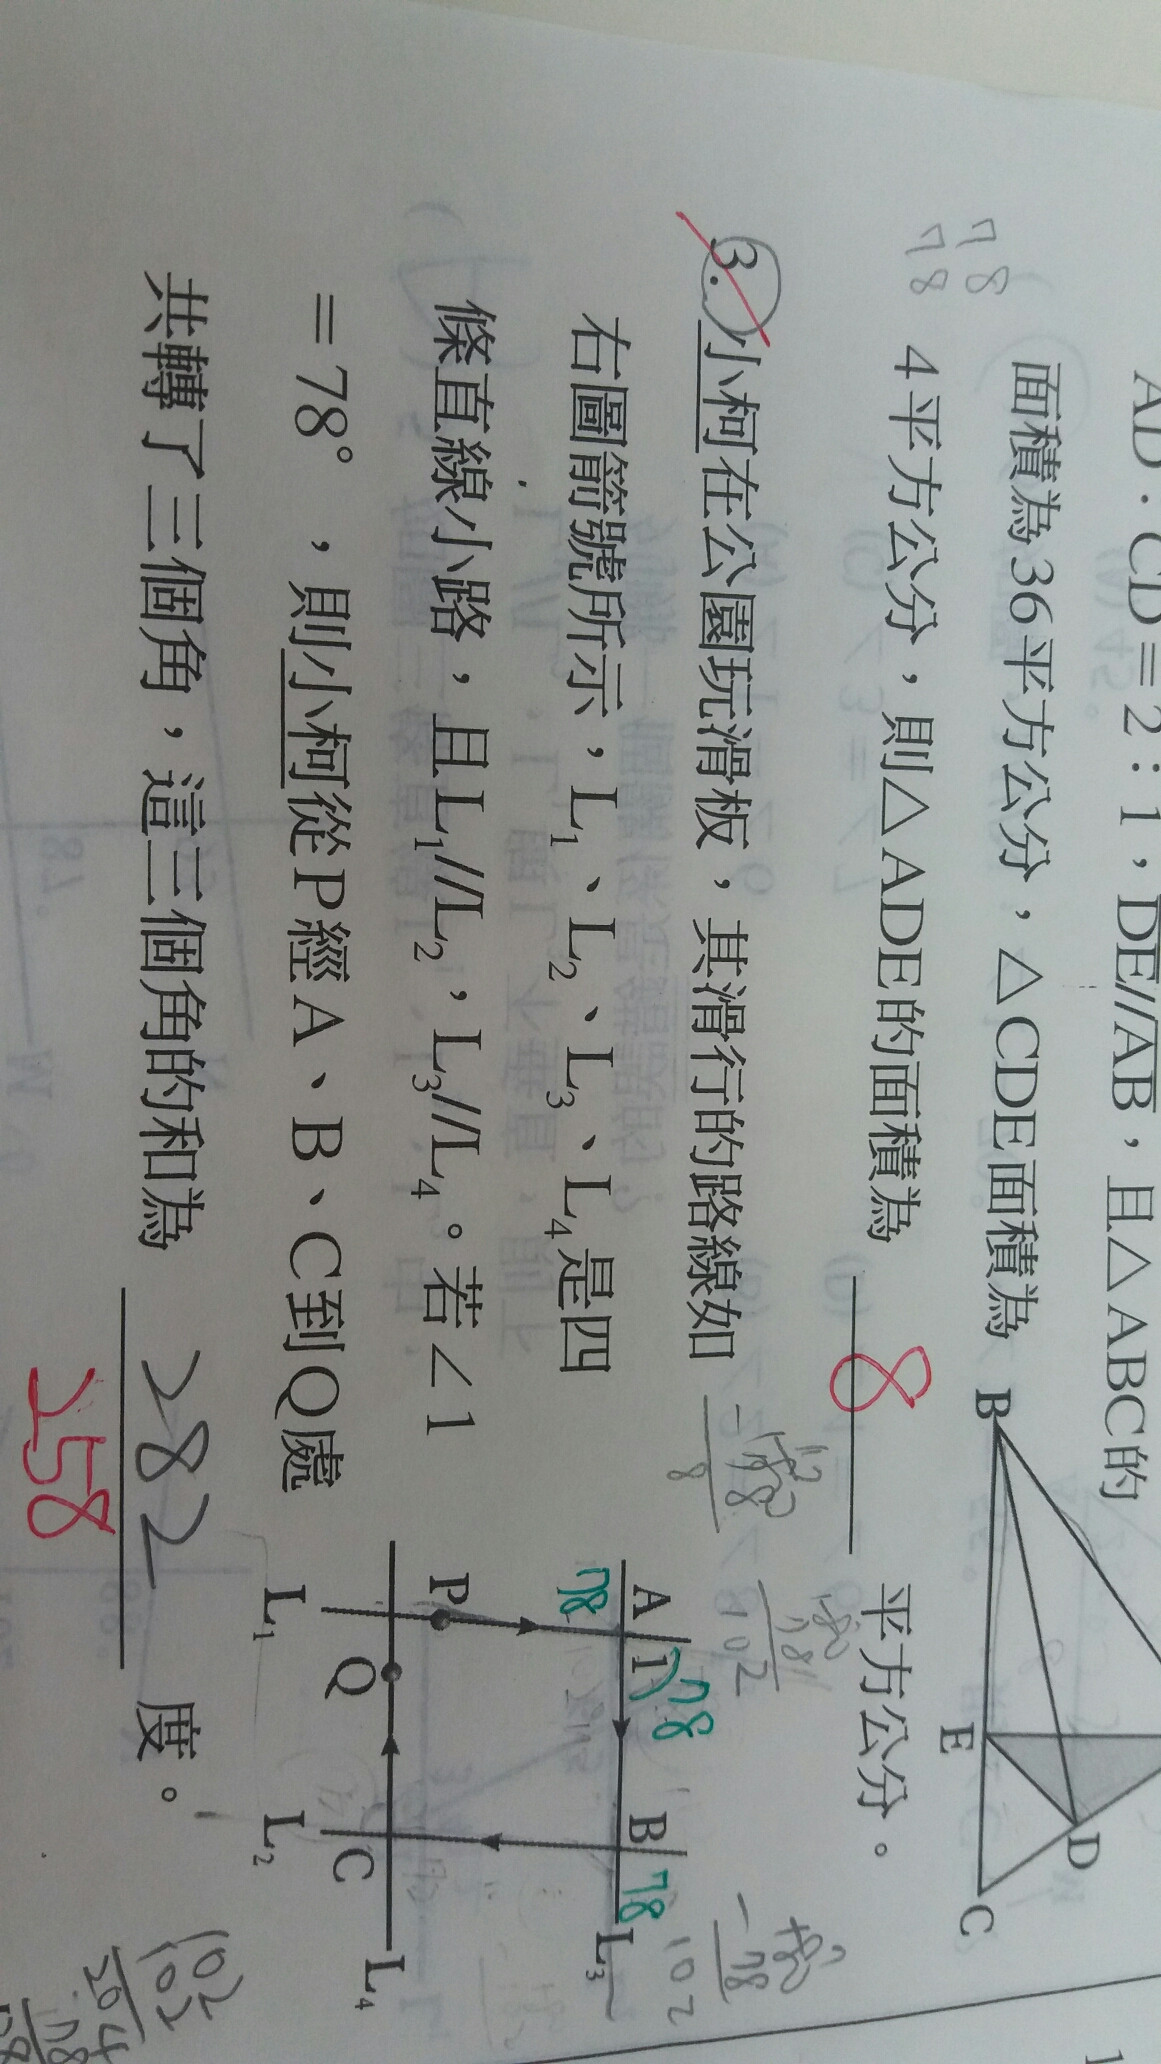 AD：CD＝2：1，DE//AB，且△ABC的
面積為36平方公分，△CDE面積為
4平方公分，則△ADE的面積為
8
平方公分。
B
E
D
C
78
78
3.小柯在公園玩滑板，其滑行的路線如
右圖箭號所示，L₁、L₂、L₃、L₄是四
條直線小路，且L₁//L₂，L₃//L₄。若∠1
＝78°，則小柯從P經A、B、C到Q處
共轉了三個角，這三個角的和為
282
258
度。
A
1
78
78
B
78
L₃
P
Q
C
L₄
L₁
L₂
102
180
78
102
102
102
204
78